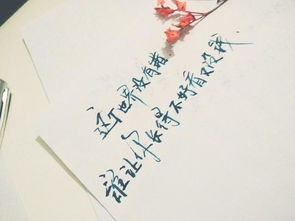 这个世界没有错
谁让你长得不好看又没钱